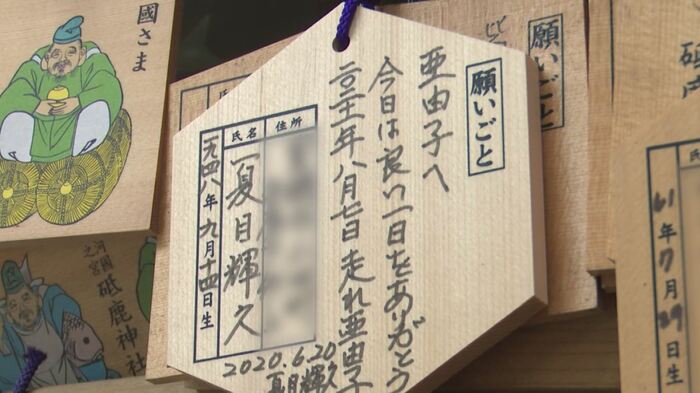 願いごと
亜由子へ
今日は良い一日をありがとう
二〇二一年八月七日走れ亜由子
住所
氏名
夏目輝久
一九四八年九月十四日生
2020.6.20
夏目輝久
國さま
河之國
砥鹿神社
願いごと
61年7月29日生